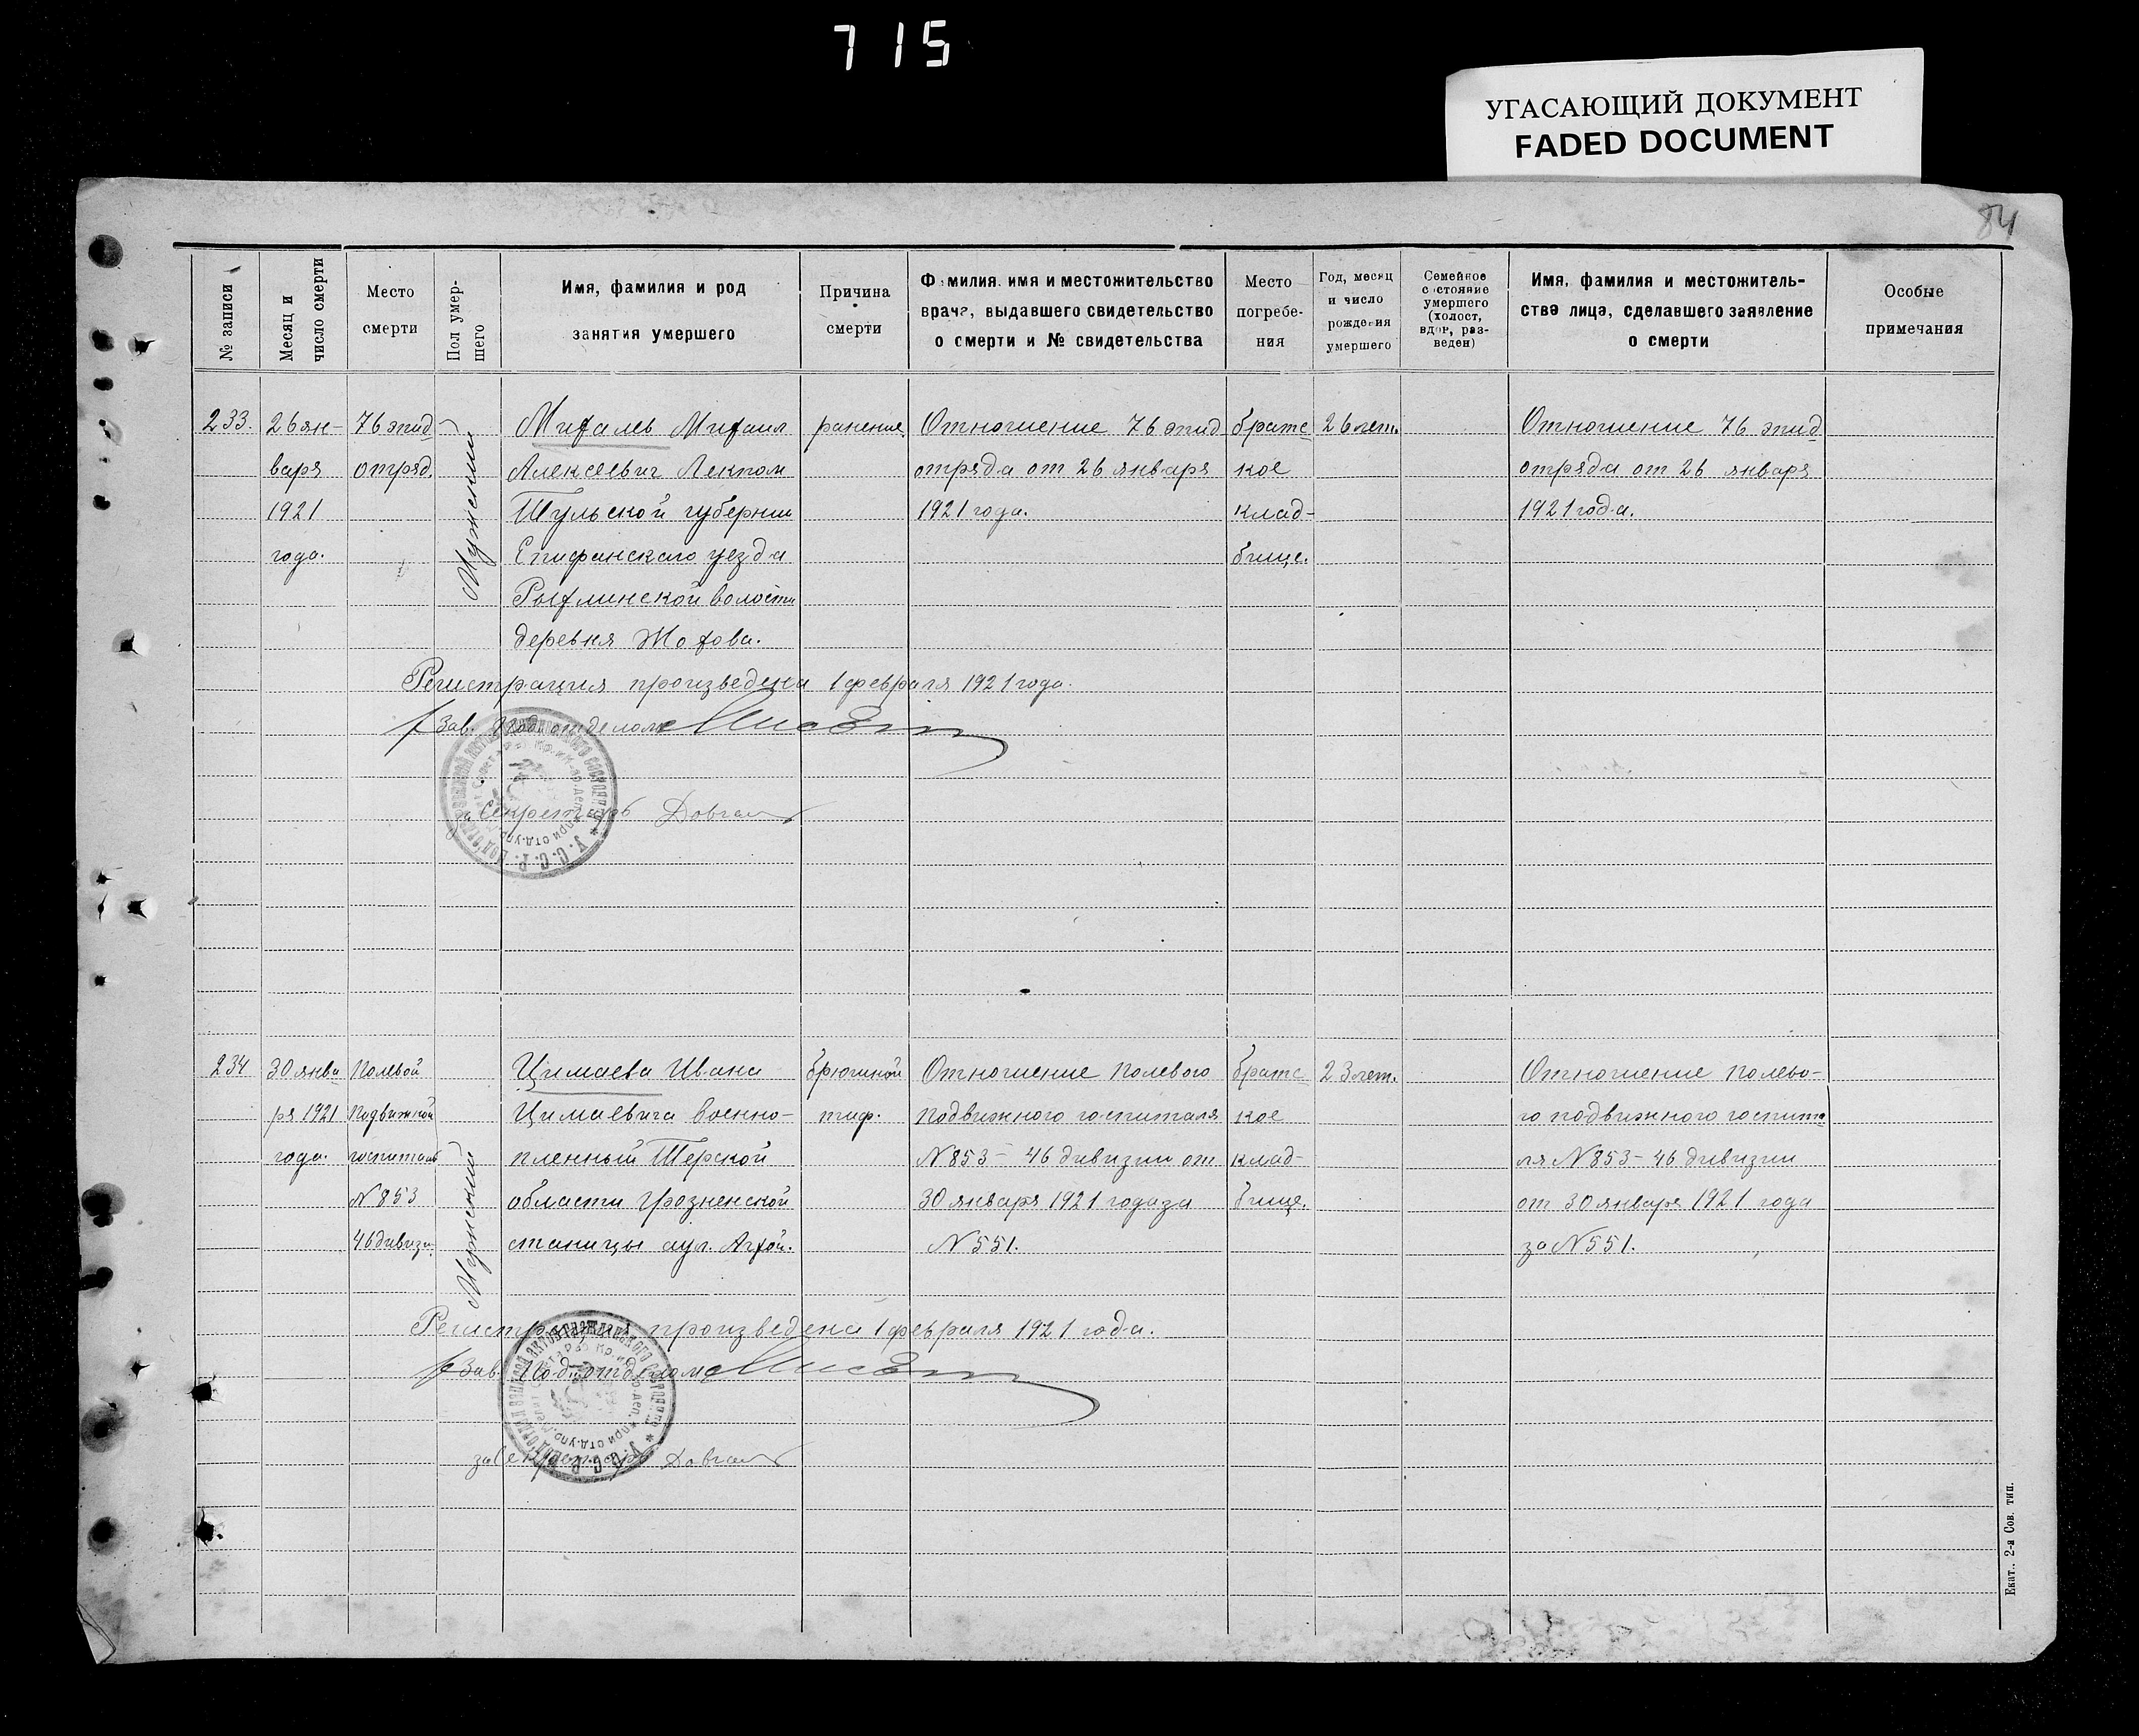 715
УГАСАЮЩИЙ ДОКУМЕНТ
FADED DOCUMENT
84
№ записи
Месяц и
число смерти
Место
смерти
Пол умер-
шего
Имя, фамилия и род
занятия умершего
Причина
смерти
Фамилия, имя и местожительство
врача, выдавшего свидетельство
о смерти и № свидетельства
Место
погребе-
ния
Год, месяц
и число
рождения
умершего
Семейное
состояние
умершего
(холост,
вдов, раз-
веден)
Имя, фамилия и местожитель-
ства лица, сделавшего заявление
о смерти
Особые
примечания
233.
26 ян-
варя
1921
года.
76 эпид
отряд.
Мужской
Михалев Михаил
Алексеевич Лекпом
Тульской губернии
Епифанскаго уезда
волости
деревня Жохова.
ранение
Отношение 76 эпид
отряда от 26 января
1921 года.
братс
кое
клад-
бище.
26 лет.
Отношение 76 эпид
отряда от 26 января
1921 года.
Регистрация произведена 1 февраля 1921 года.
Зав. Подотделом
Секретарь Довгаль
У.С.С.Р.
234
30 янва
ря 1921
года.
Полевой
подвижной
госпиталь
N 853
46 дивизи
Мужской
Цимаева Ивана
Цимаевича военно-
пленный Терской
области Грозненской
станицы аул.
брюшной
тиф.
Отношение полевого
подвижного госпиталя
N 853 - 46 дивизии от
30 января 1921 года за
N 551.
братс
кое
клад-
бище.
23 лет.
Отношение полево-
го подвижного госпита
ля N 853 - 46 дивизии
от 30 января 1921 года
за N 551.
Регистрация произведена 1 февраля 1921 года.
Зав. Подотделом
за Секретарь Довгаль
У.С.С.Р.
Екат. 2-я Сов. тип.